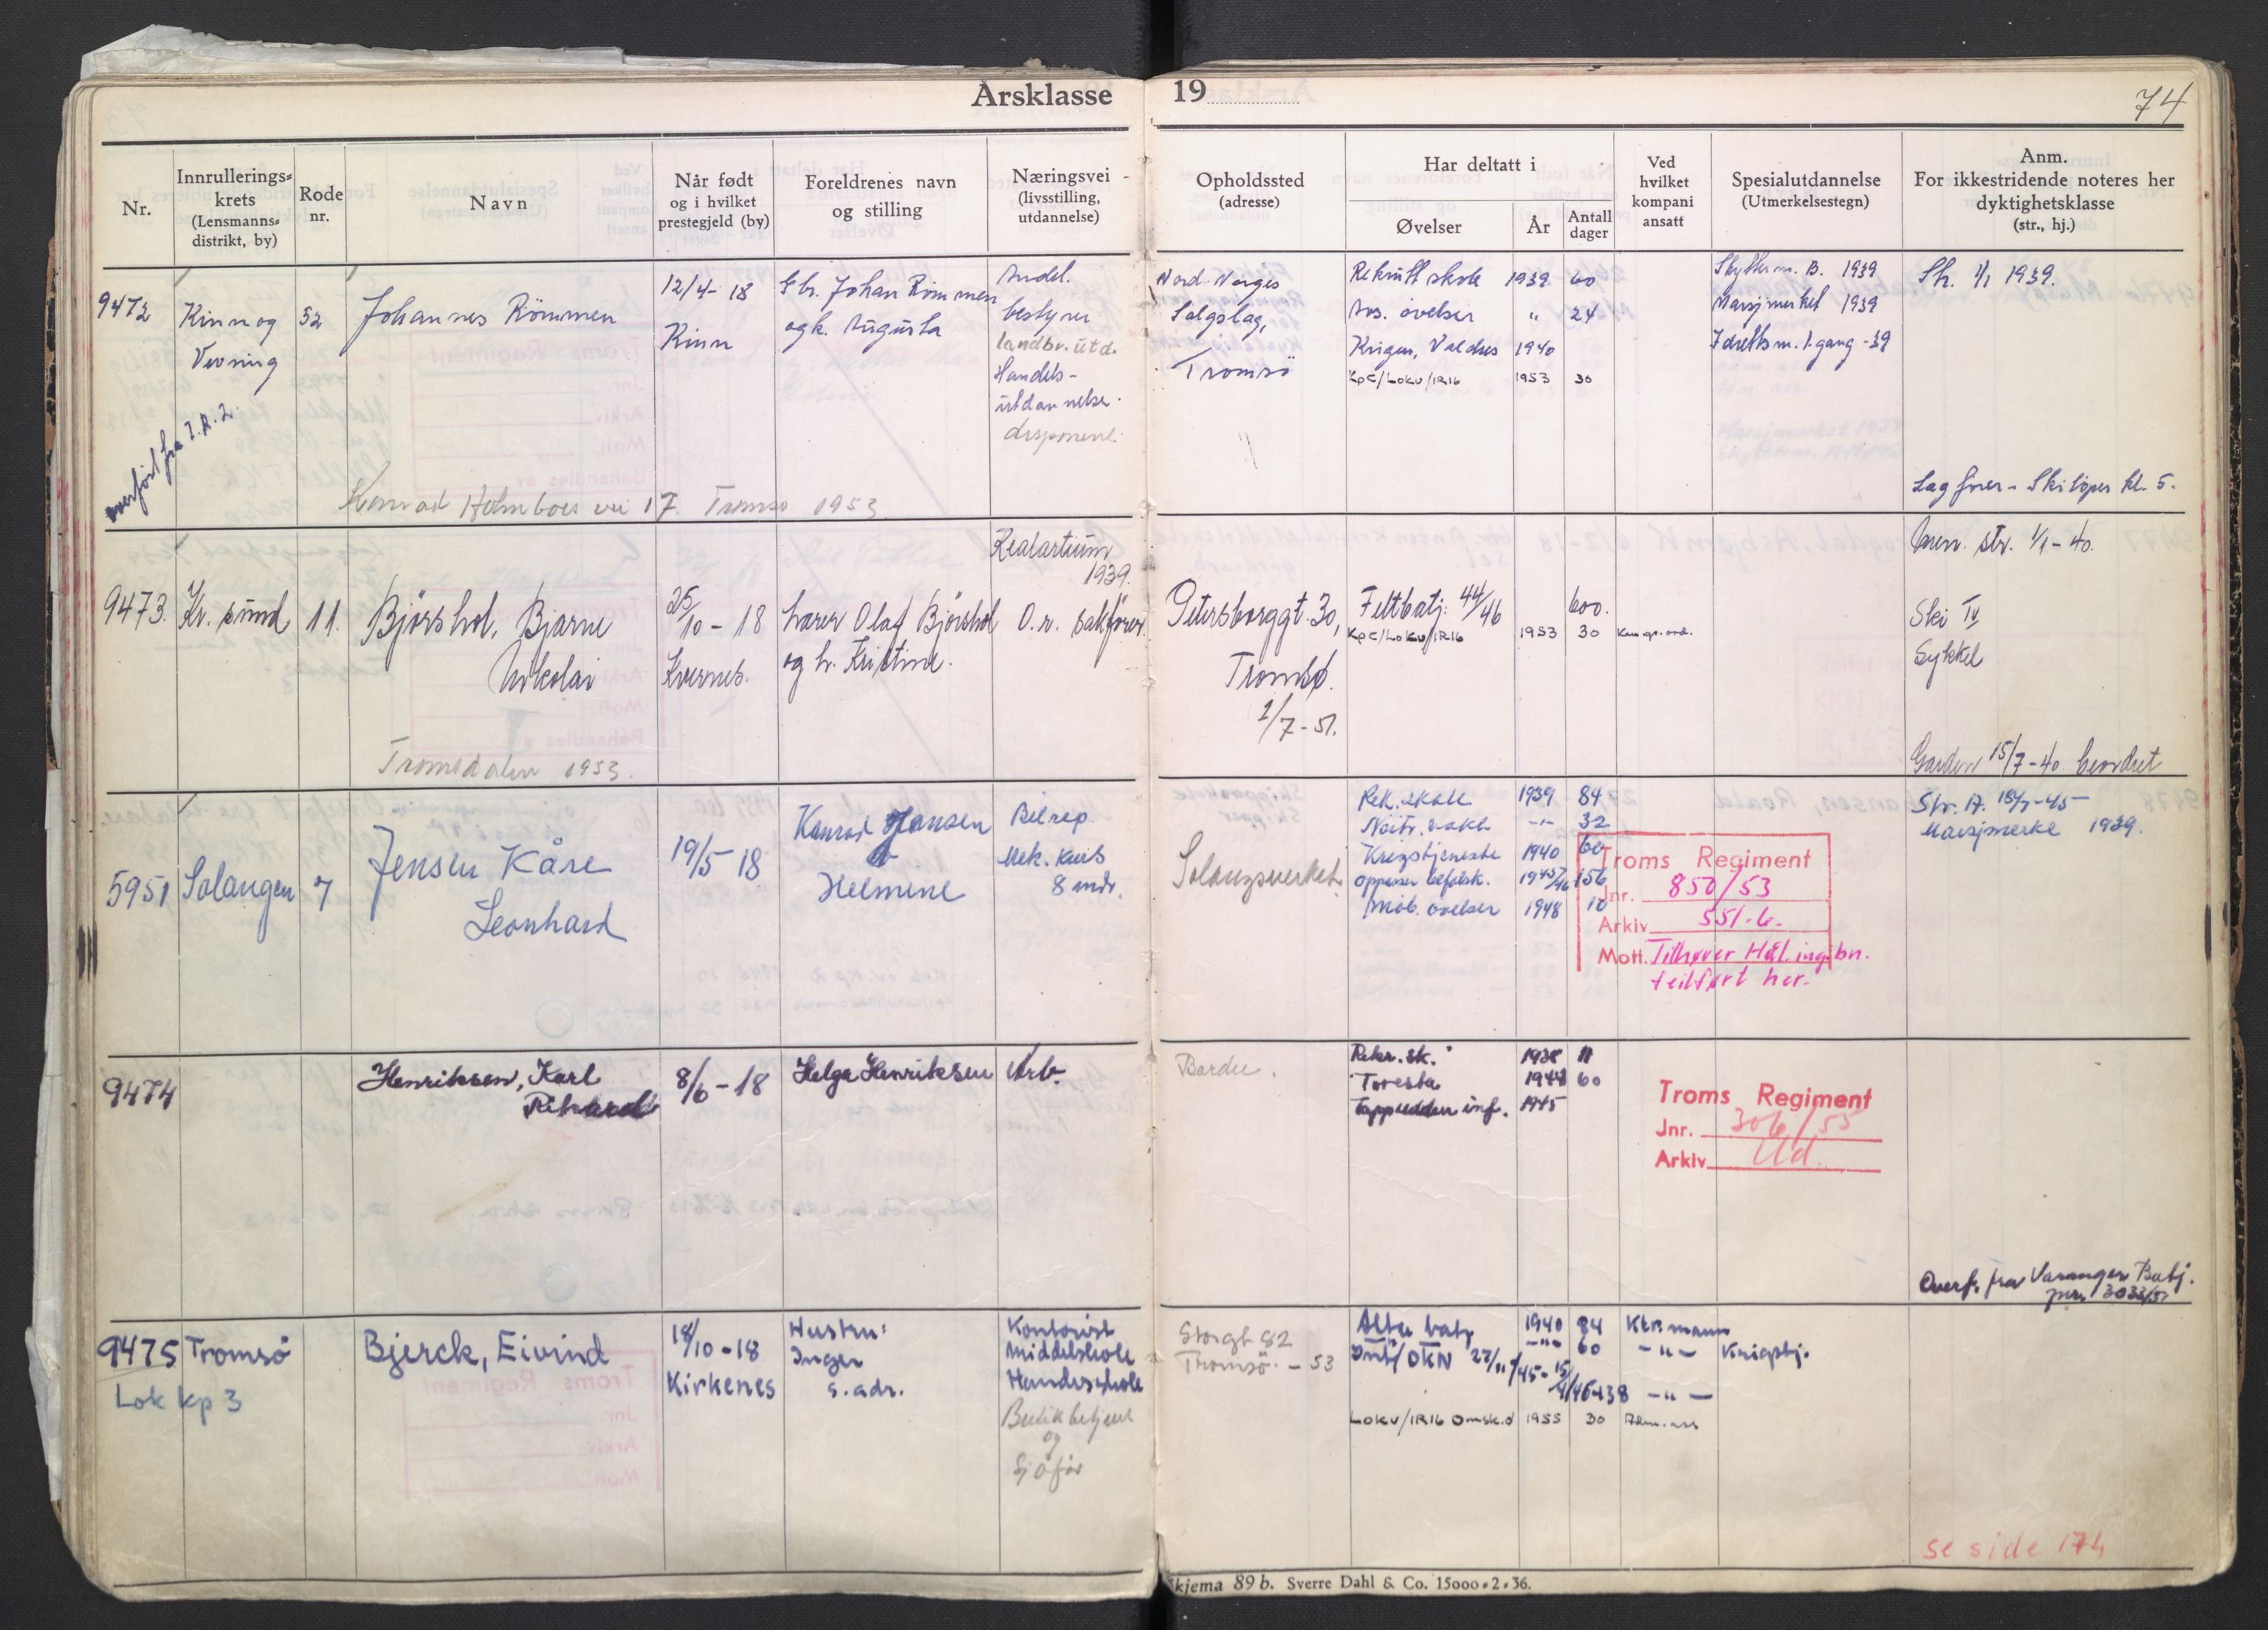 Årsklasse 19
74
Nr.
Innrullerings-
krets
(Lensmanns-
distrikt, by)
Rode
nr.
Navn
Når født
og i hvilket
prestegjeld (by)
Foreldrenes navn
og stilling
Næringsvei
(livsstilling,
utdannelse)
Opholdssted
(adresse)
Har deltatt i
Øvelser
År
Antall
dager
Ved
hvilket
kompani
ansatt
Spesialutdannelse
(Utmerkelsestegn)
Anm.
For ikkestridende noteres her
dyktighetsklasse
(str., hj.)
9472
Kinn og
Vevring
52
Johannes Römmen
12/4-18
Kinn
Gbr. Johan Römmen
og k. Augusta
Andel.
bestyrer
landbr. utd.
Handels-
utdannelse.
disponent.
Nord-Norges
Salgslag,
Tromsö
Rekruttskole 1939 60
Avs. övelser " 24
Krigen, Valdres 1940
KpC/LOKV/IR16 1953 30
Skytterm. B. 1939
Marsjmerket 1939
Idrettsm. 1. gang -39
Sh. 1/1 1939.
overført fra I.R.2.
Konrad Holmboes vei 17. Tromsö 1953
Lagfører - Skilöper kl. 5.
9473.
Kr. sund
11.
Bjørshol, Bjarne
Nikolai
25/10-18
Kvernes.
Lærer Olaf Bjørshol
og h. Kristine.
Realartium
1939.
O.r. sakfører
Petersborggt. 30,
Tromsø.
1/7-51.
Feltbatj. 44/46 600.
KpC/LOKV/IR16 1953 30
Men. str. 1/1-40.
Ski IV
Sykkel
Garden 15/7-40. beordret
Tromsdalen 1953.
5951
Salangen
7
Jensen Kåre
Leonhard
19/5-18
Konrad Jensen
Helmine
Bilrep.
Mek. kurs
8 mdr.
Salangsverket
Rek. skole 1939 84
Nøitr. vakt -"- 32
Krigstjeneste 1940 60
oppøver befalsk. 1945/46 156
Mob. øvelser 1948 10
Troms Regiment
Jnr. 850/53
Arkiv 551.6.
Mott. Tilhøver Hål. ing. bn.
feilført her.
Str. A. 18/7-45
Marsjmerke 1939.
9474
Henriksen, Karl
Rikard
8/6-18
Helga Henriksen
Arb.
Bardu.
Rekr. sk. 1938
1944 60
inf. 1945
Troms Regiment
Jnr. 306/55
Arkiv Ud.
Overf. fra Varanger Batj.
9475
Tromsö
Lok kp 3
Bjerck, Eivind
18/10-18
Kirkenes
Hustru:
Inger
s. adr.
Kontorist
Middelskole
Handelsskole
Butikbetjent
og
Sjåfør
Storgt 82
Tromsö. - 53
Alta batj 1940 84
Int/DKN -"- 60 -"- Krigstj.
-"-
LOKV/IR16 Omsk.d 1955 30 Adm.ass
se side 174
Skjema 89 b. Sverre Dahl & Co. 15000-2-36.